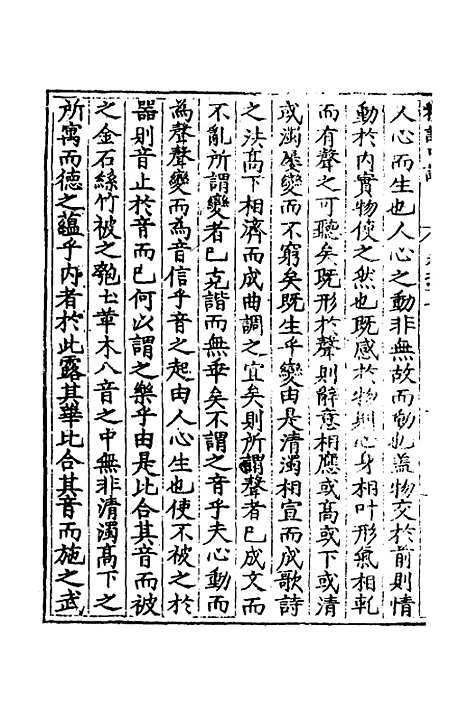 人心而生也人心之動非無故而動也蓋物交於前則情
動於內實物使之然也既感於物則心身相叶形氣相軋
而有聲之可聽矣既形於聲則辭意相應或高或下或清
或濁屢變而不窮矣既生乎變由是清濁相宣而成歌詩
之法高下相濟而成曲調之宜矣則所謂聲者已成文而
不亂所謂變者已克諧而無乖矣不謂之音乎夫心動而
為聲聲變而為音信乎音之起由人心生也使不被之於
器則音止於音而已何以謂之樂乎由是比合其音而被
之金石絲竹被之匏土革木八音之中無非清濁高下之
所寓而德之蘊乎內者於此露其華比合其音而施之武